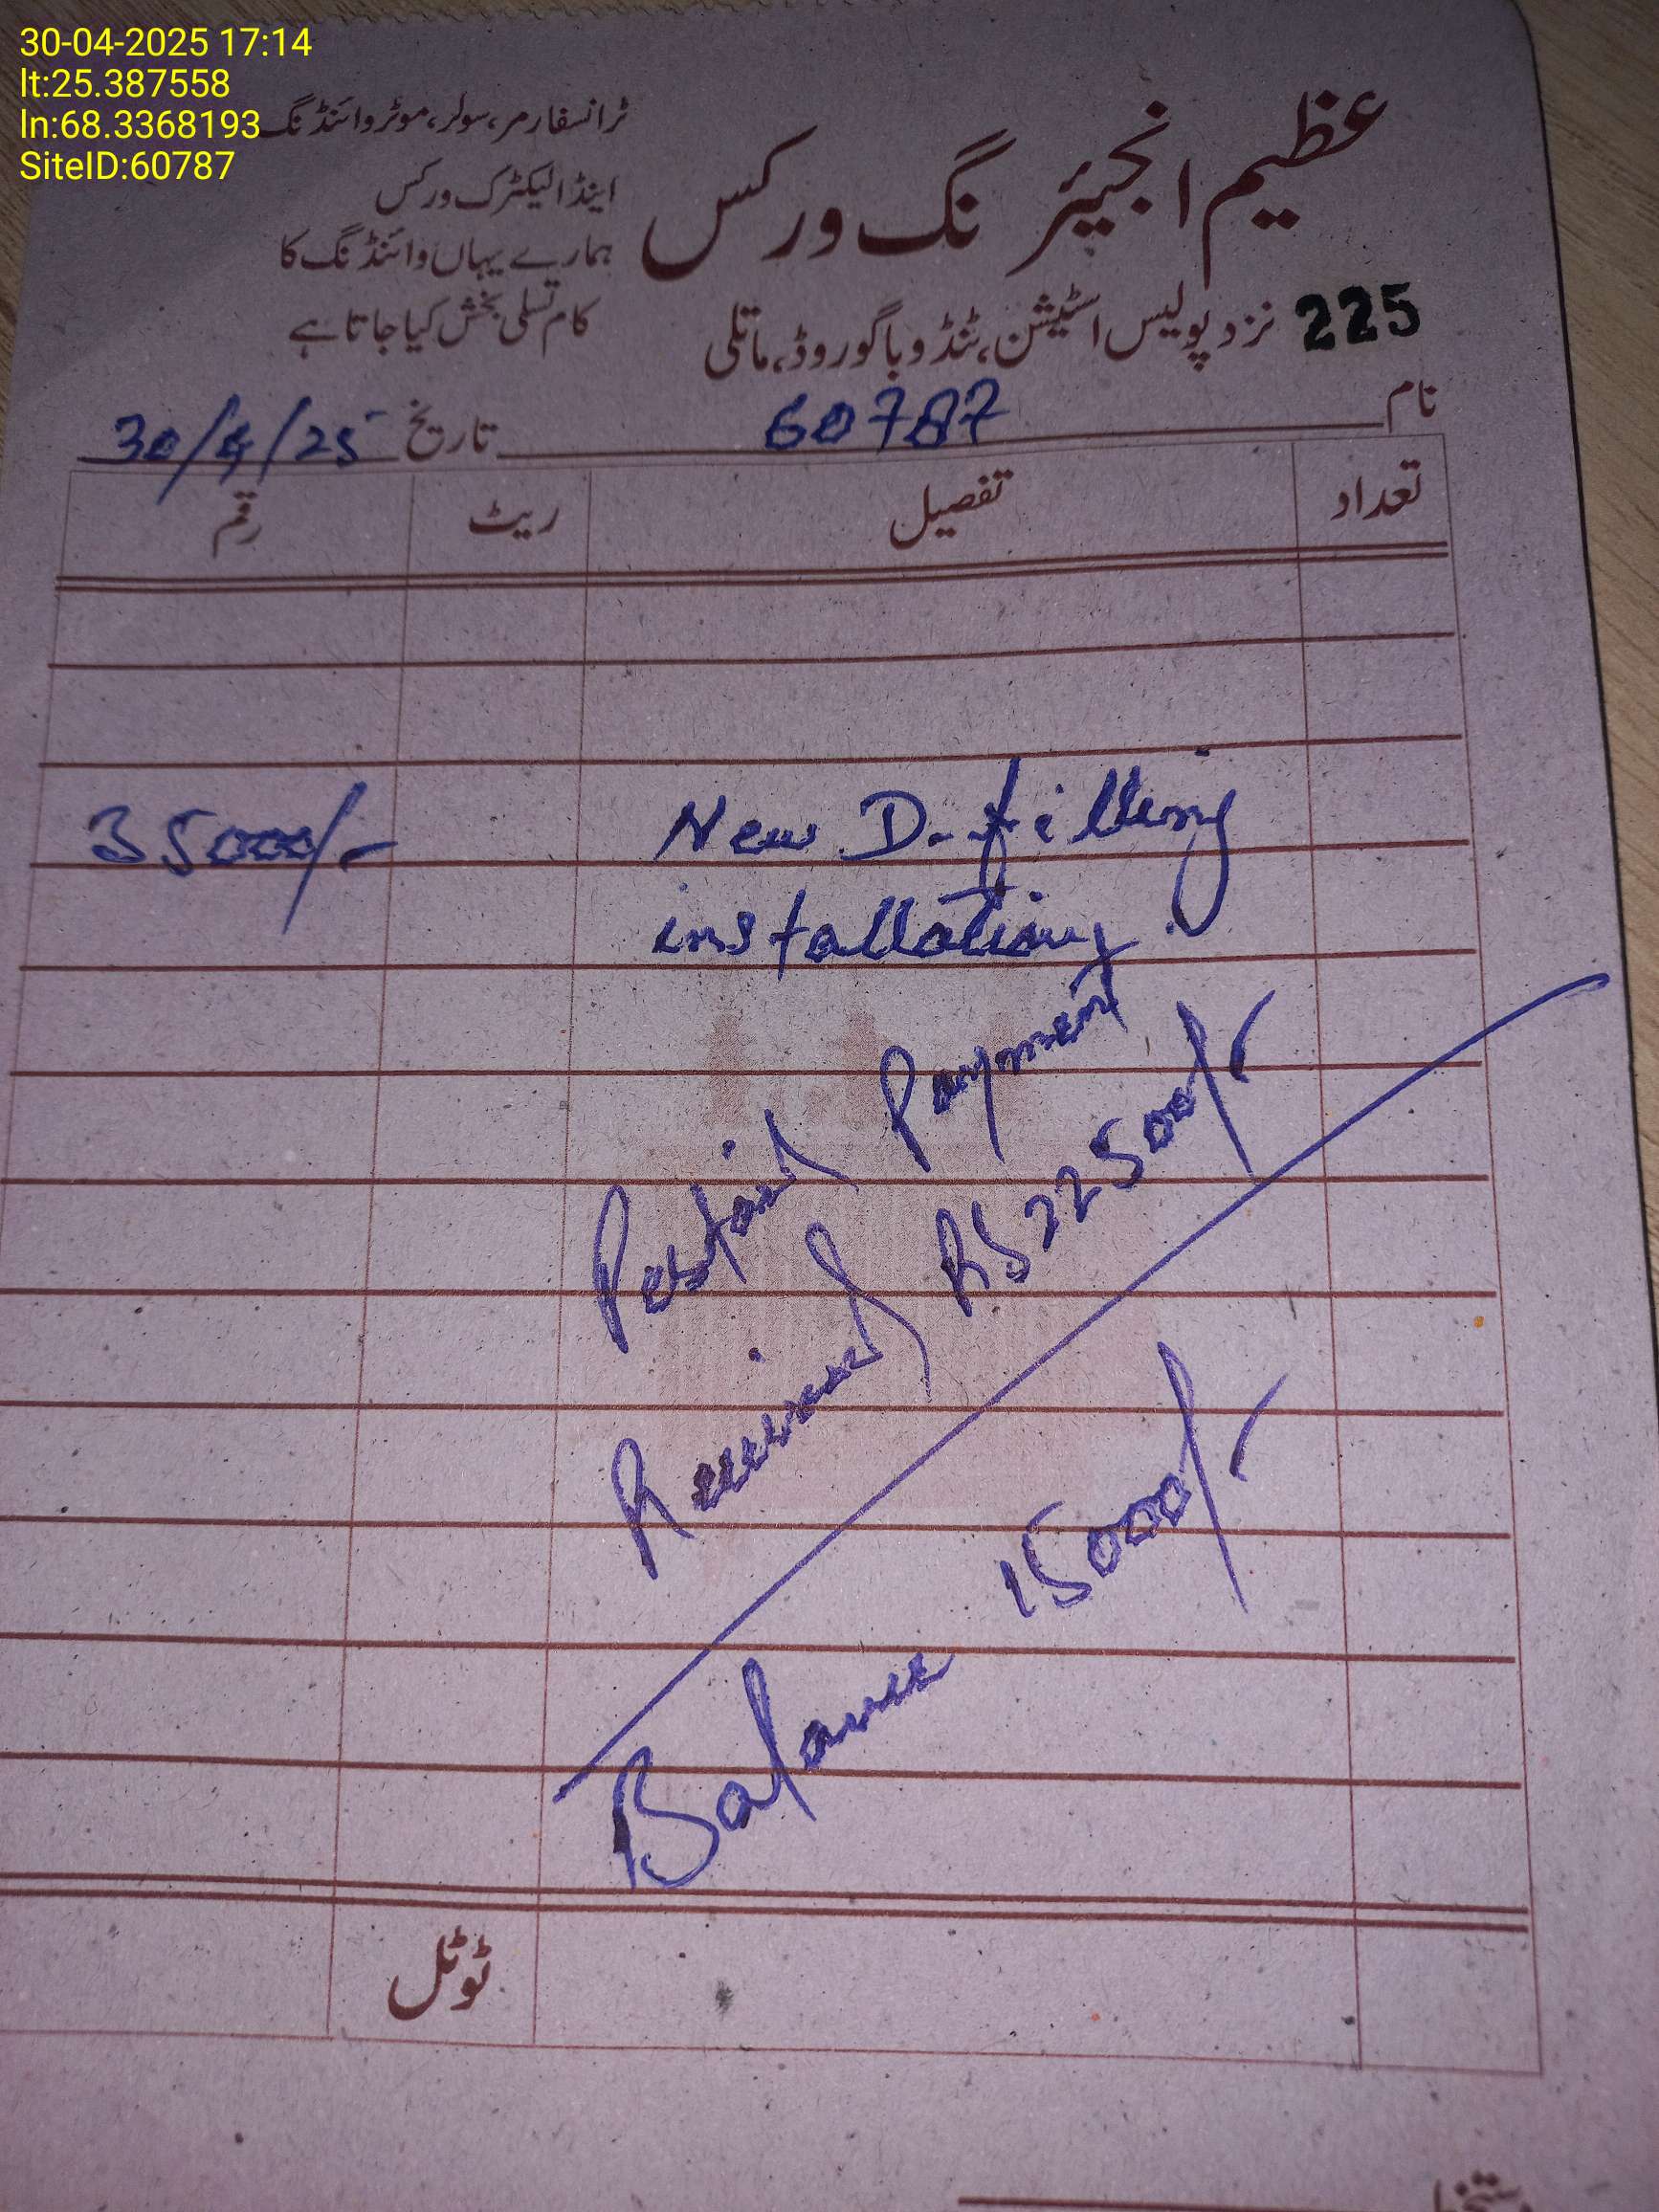 30-04-2025 17:14
lt:25.387558
ln:68.3368193
SiteID:60787
عظیم انجیئر نگ ورکس
ٹرانسفارمر، سولر، موٹر وائنڈنگ
اینڈ الیکٹرک ورکس
ہمارے یہاں وائنڈنگ کا
کام تسلی بخش کیا جاتا ہے
225 نزد پولیس اسٹیشن، ٹنڈو باگو روڈ، ماتلی
نام 60787 تاریخ 30/4/25
تعداد تفصیل ریٹ رقم
New D-filling 35000/-
installation
Pastail Payment
Received RS 22500/-
Balance 15000/-
ٹوٹل